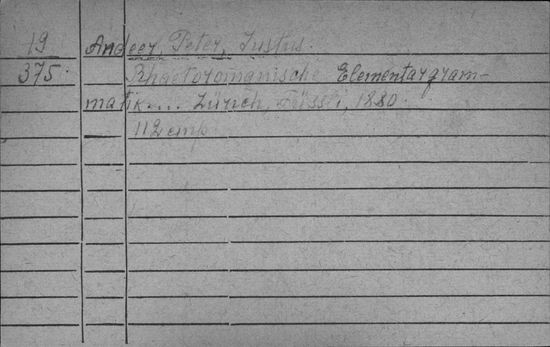 19 Andeer, Peter, Justus.
375. Rhaetoromanische Elementargram-
matik.... Zürich, Füssli, 1880.
112 стр